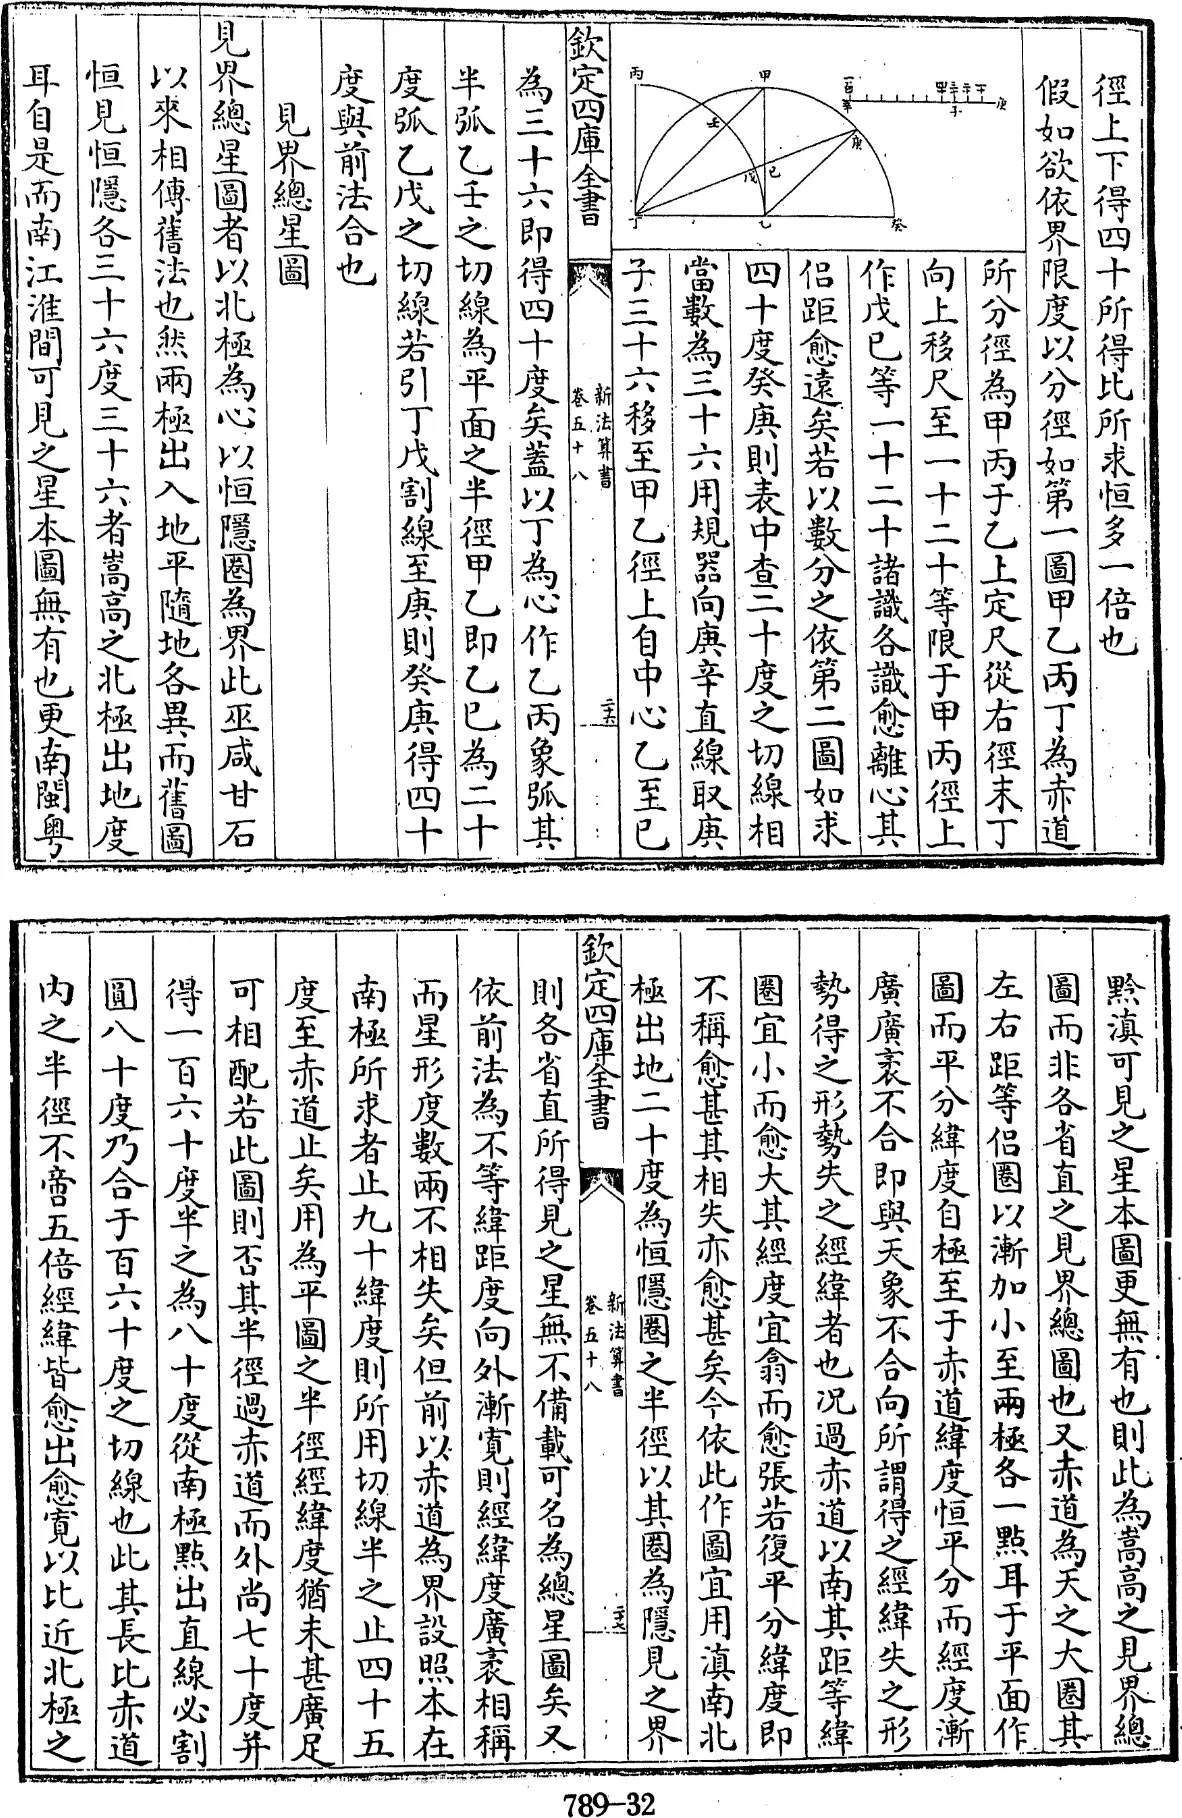 徑上下得四十所得比所求恒多一倍也
假如欲依界限度以分徑如第一圖甲乙丙丁為赤道
所分徑為甲丙于乙上定尺從右徑末丁
向上移尺至一十二十等限于甲丙徑上
作戊己等一十二十諸識各識愈離心其
侣距愈遠矣若以數分之依第二圖如求
四十度癸庚則表中查二十度之切線相
當數為三十六用規器向庚辛直線取庚
子三十六移至甲乙徑上自中心乙至已
丙
甲
壬
庚
戊
己
丁
乙
癸
庚
辛
子
欽定四庫全書
新法算書
卷五十八
二十六
為三十六即得四十度矣蓋以丁為心作乙丙象弧其
半弧乙壬之切線為平面之半徑甲乙即乙巳為二十
度弧乙戊之切線若引丁戊割線至庚則癸庚得四十
度與前法合也
見界總星圖
見界總星圖者以北極為心以恒隱圈為界此巫咸甘石
以來相傳舊法也然兩極出入地平隨地各異而舊圖
恒見恒隱各三十六度三十六者嵩高之北極出地度
耳自是而南江淮間可見之星本圖無有也更南閩粤
黔滇可見之星本圖更無有也則此為嵩高之見界總
圖而非各省直之見界總圖也又赤道為天之大圈其
左右距等侣圈以漸加小至兩極各一點耳于平面作
圖而平分緯度自極至于赤道緯度恒平分而經度漸
廣廣袤不合即與天象不合向所謂得之經緯失之形
勢得之形勢失之經緯者也况過赤道以南其距等緯
圈宜小而愈大其經度宜翕而愈張若復平分緯度即
不稱愈甚其相失亦愈甚矣今依此作圖宜用滇南北
極出地二十度為恒隱圈之半徑以其圈為隱見之界
欽定四庫全書
新法算書
卷五十八
則各省直所得見之星無不備載可名為總星圖矣又
依前法為不等緯距度向外漸寬則經緯度廣袤相稱
而星形度數兩不相失矣但前以赤道為界設照本在
南極所求者止九十緯度則所用切線半之止四十五
度至赤道止矣用為平圖之半徑經緯度猶未甚廣足
可相配若此圖則否其半徑過赤道而外尚七十度并
得一百六十度半之為八十度從南極點出直線必割
圓八十度乃合于百六十度之切線也此其長比赤道
内之半徑不啻五倍經緯皆愈出愈寬以比近北極之
789-32